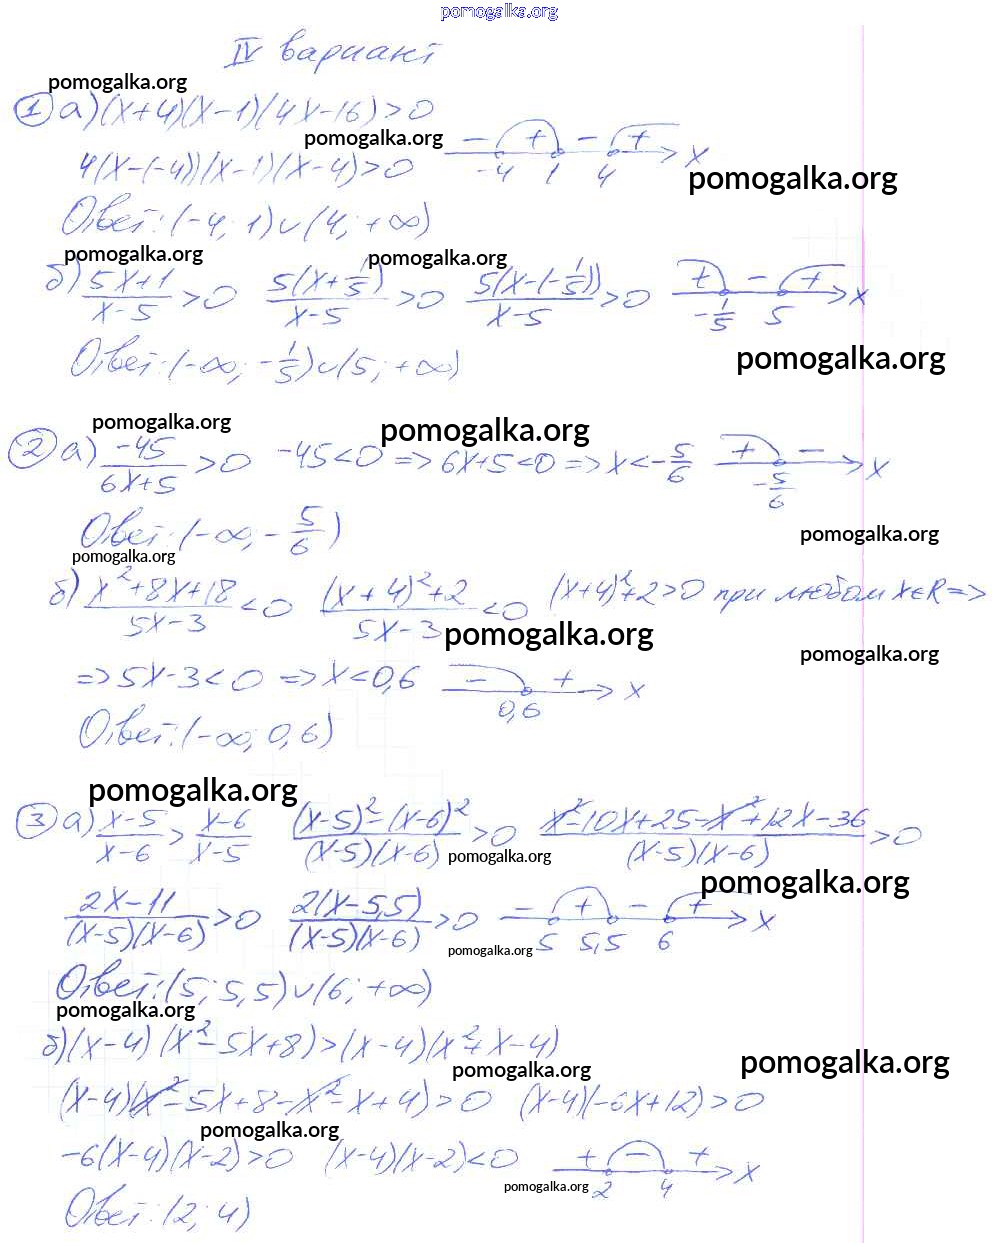 pomogalka.org
IV вариант
pomogalka.org
① а) (x+4)(x-1)(4x-16)>0
pomogalka.org
4(x-(-4))(x-1)(x-4)>0 - + - + -4 1 4 x
pomogalka.org
Ответ: (-4; 1)∪(4; +∞)
pomogalka.org pomogalka.org
б) (5x+1)/(x-5)>0 5(x+1/5)/(x-5)>0 5(x-(-1/5))/(x-5)>0 + - + -1/5 5 x
pomogalka.org
Ответ: (-∞; -1/5)∪(5; +∞)
pomogalka.org pomogalka.org
② а) -45/(6x+5)>0 -45<0 => 6x+5<0 => x<-5/6 + - -5/6 x
Ответ: (-∞; -5/6)
pomogalka.org
pomogalka.org
б) (x²+8x+18)/(5x-3)<0 ((x+4)²+2)/(5x-3)<0 (x+4)²+2>0 при любом x∈R =>
pomogalka.org
pomogalka.org
=> 5x-3<0 => x<0,6 - + 0,6 x
Ответ: (-∞; 0,6)
pomogalka.org
③ а) (x-5)/(x-6)>(x-6)/(x-5) ((x-5)²-(x-6)²)/((x-5)(x-6))>0 (x²-10x+25-x²+12x-36)/((x-5)(x-6))>0
pomogalka.org
pomogalka.org
(2x-11)/((x-5)(x-6))>0 2(x-5,5)/((x-5)(x-6))>0 - + - + 5 5,5 6 x
pomogalka.org
Ответ: (5; 5,5)∪(6; +∞)
pomogalka.org
б) (x-4)(x²-5x+8)>(x-4)(x²+x-4)
pomogalka.org pomogalka.org
(x-4)(x²-5x+8-x²-x+4)>0 (x-4)(-6x+12)>0
pomogalka.org
-6(x-4)(x-2)>0 (x-4)(x-2)<0 + - + 2 4 x
pomogalka.org
Ответ: (2; 4)